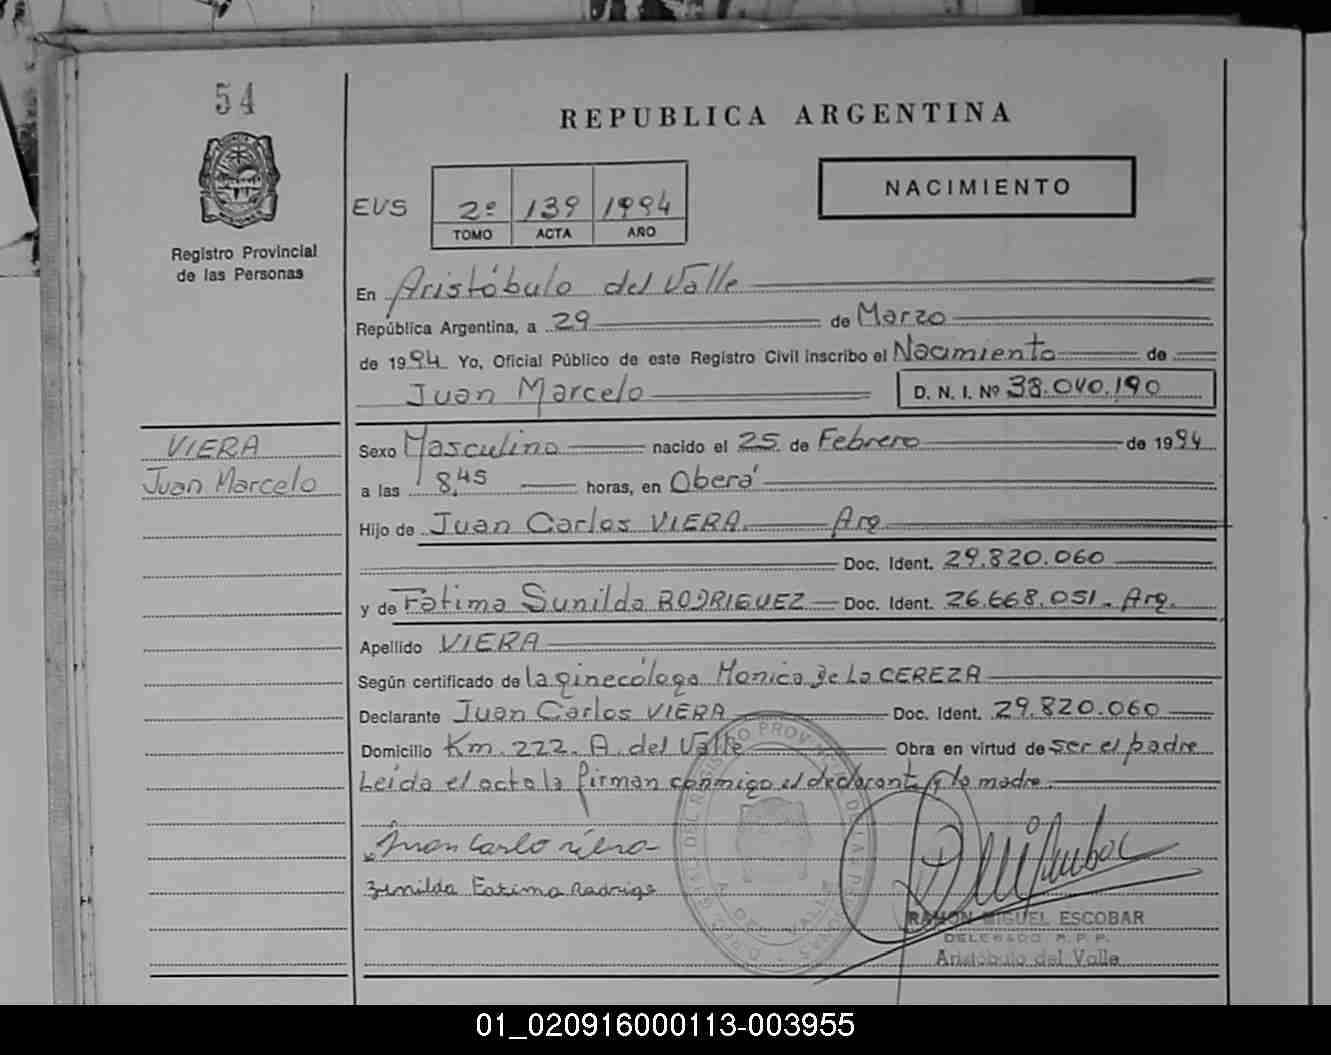 54
REPUBLICA ARGENTINA
NACIMIENTO
EVS 2º 139 1994
TOMO ACTA AÑO
Registro Provincial
de las Personas
En Aristóbulo del Valle
República Argentina, a 29 de Marzo
de 1994 Yo, Oficial Público de este Registro Civil inscribo el Nacimiento de
Juan Marcelo D. N. I. Nº 38.040.190
VIERA
Juan Marcelo
Sexo Masculino nacido el 25 de Febrero de 1994
a las 8,45 horas, en Oberá
Hijo de Juan Carlos VIERA. Arg
Doc. Ident. 29.820.060
y de Fatima Sunilda RODRIGUEZ Doc. Ident. 26.668.051. Arg.
Apellido VIERA
Según certificado de la ginecóloga Monica De La CEREZA
Declarante Juan Carlos VIERA Doc. Ident. 29.820.060
Domicilio Km. 222. A. del Valle Obra en virtud de ser el padre
Leída el acta la firman conmigo el declarante y la madre.
Juan Carlo viera
Zunilda Fatima Radrige
A. DEL VALLE
RAMON MIGUEL ESCOBAR
DELEGADO R. P. P.
Aristóbulo del Valle
01_020916000113-003955